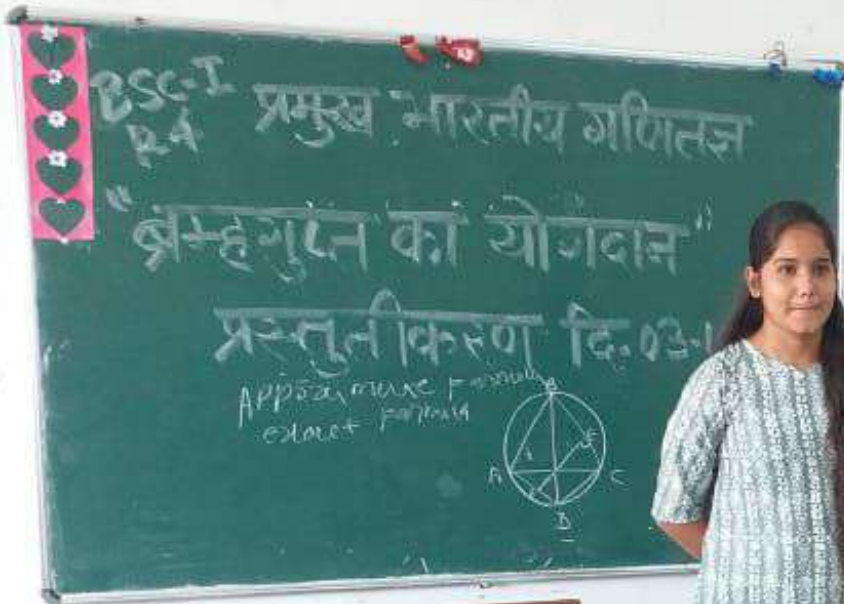 BSC-I
R4
प्रमुख भारतीय गणितज्ञ
"ब्रम्हगुप्त का योगदान"
प्रस्तुतीकरण दि. 03-1
Approximate Formula
exact formula
B
A
C
E
D